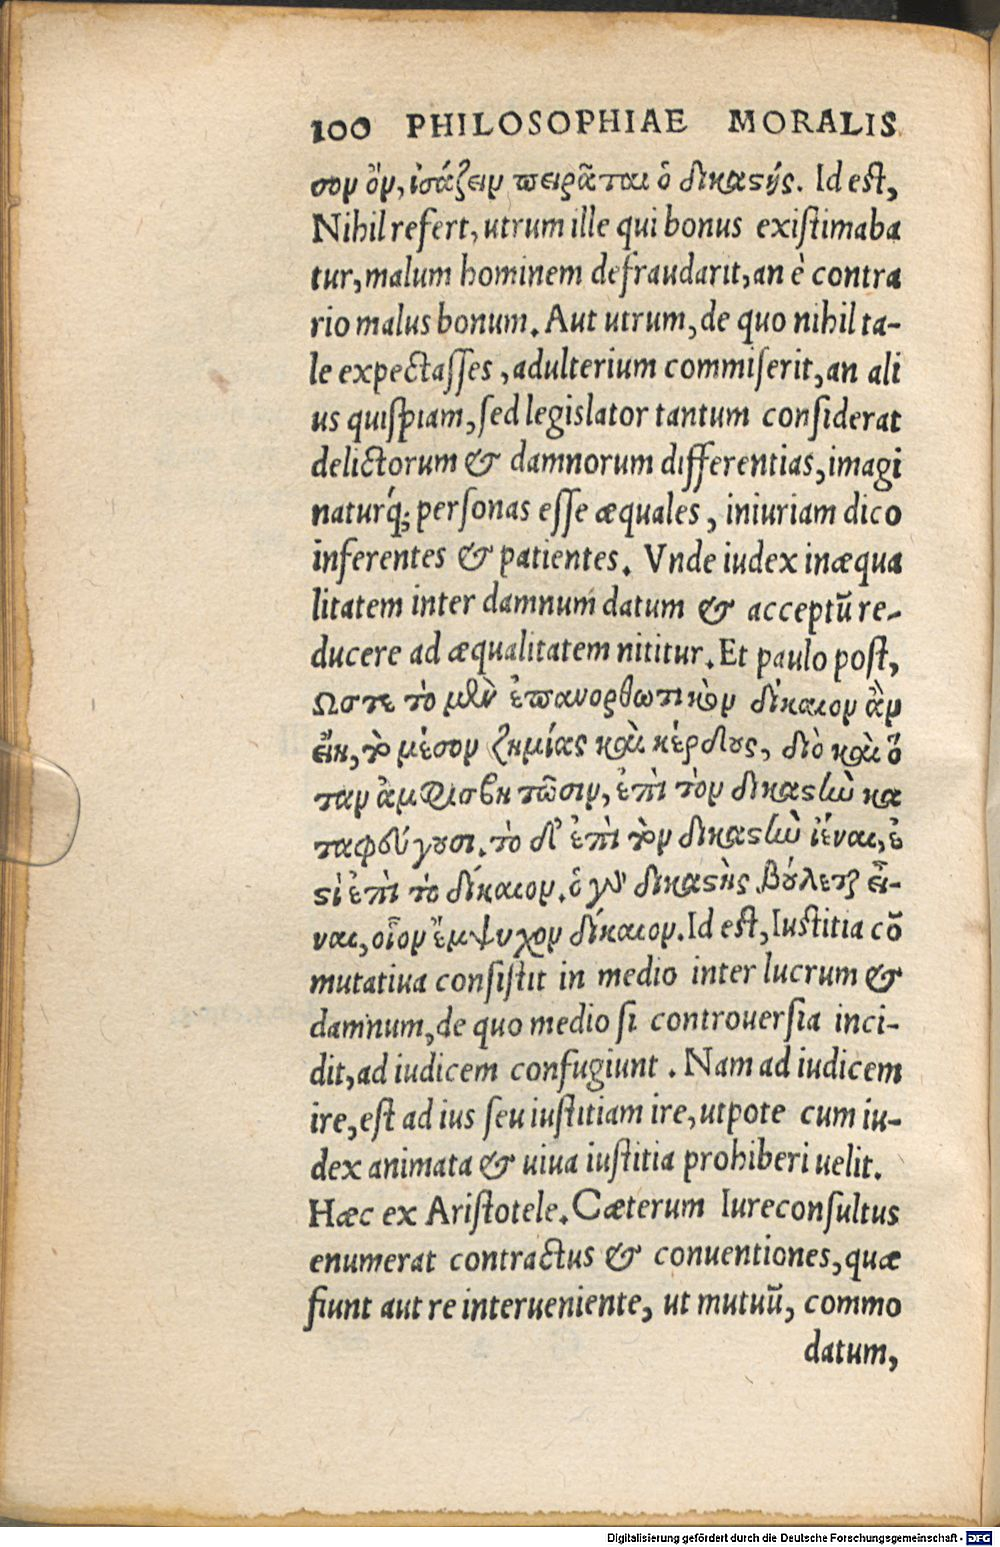 100 PHILOSOPHIAE MORALIS
σον ὂν, ἰσάζειν πειρᾶται ὁ δικαϛής. Id eſt,
Nihil refert, utrum ille qui bonus exiſtimaba
tur, malum hominem defraudarit, an è contra
rio malus bonum. Aut utrum, de quo nihil ta-
le expectaſſes, adulterium commiſerit, an ali
us quiſpiam, ſed legislator tantum conſiderat
delictorum & damnorum differentias, imagi
naturq́; perſonas eſſe æquales, iniuriam dico
inferentes & patientes. Vnde iudex inæqua
litatem inter damnum datum & acceptū re-
ducere ad æqualitatem nititur. Et paulo poſt,
Ωστε τὸ μὲν ἐπανορθωτικὸν δίκαιον ἂν
εἴη, τὸ μέσον ζημίας καὶ κέρδους, διὸ καὶ ὅ
ταν ἀμφισβητῶσιν, ἐπὶ τὸν δικαϛὴν κα
ταφεύγουσι. τὸ δ' ἐπὶ τὸν δικαϛὴν ἰέναι, ἐ
ϛὶ ἐπὶ τὸ δίκαιον. ὁ γὰρ δικαϛὴς βούλεται εἶ-
ναι, οἷον ἔμψυχον δίκαιον. Id eſt, Iuſtitia cō
mutatiua conſiſtit in medio inter lucrum &
damnum, de quo medio ſi controuerſia inci-
dit, ad iudicem confugiunt. Nam ad iudicem
ire, eſt ad ius ſeu iuſtitiam ire, utpote cum iu-
dex animata & uiua iuſtitia prohiberi uelit.
Hæc ex Ariſtotele. Cæterum Iureconſultus
enumerat contractus & conuentiones, quæ
fiunt aut re interueniente, ut mutuū, commo
datum,
Digitalisierung gefördert durch die Deutsche Forschungsgemeinschaft - DFG